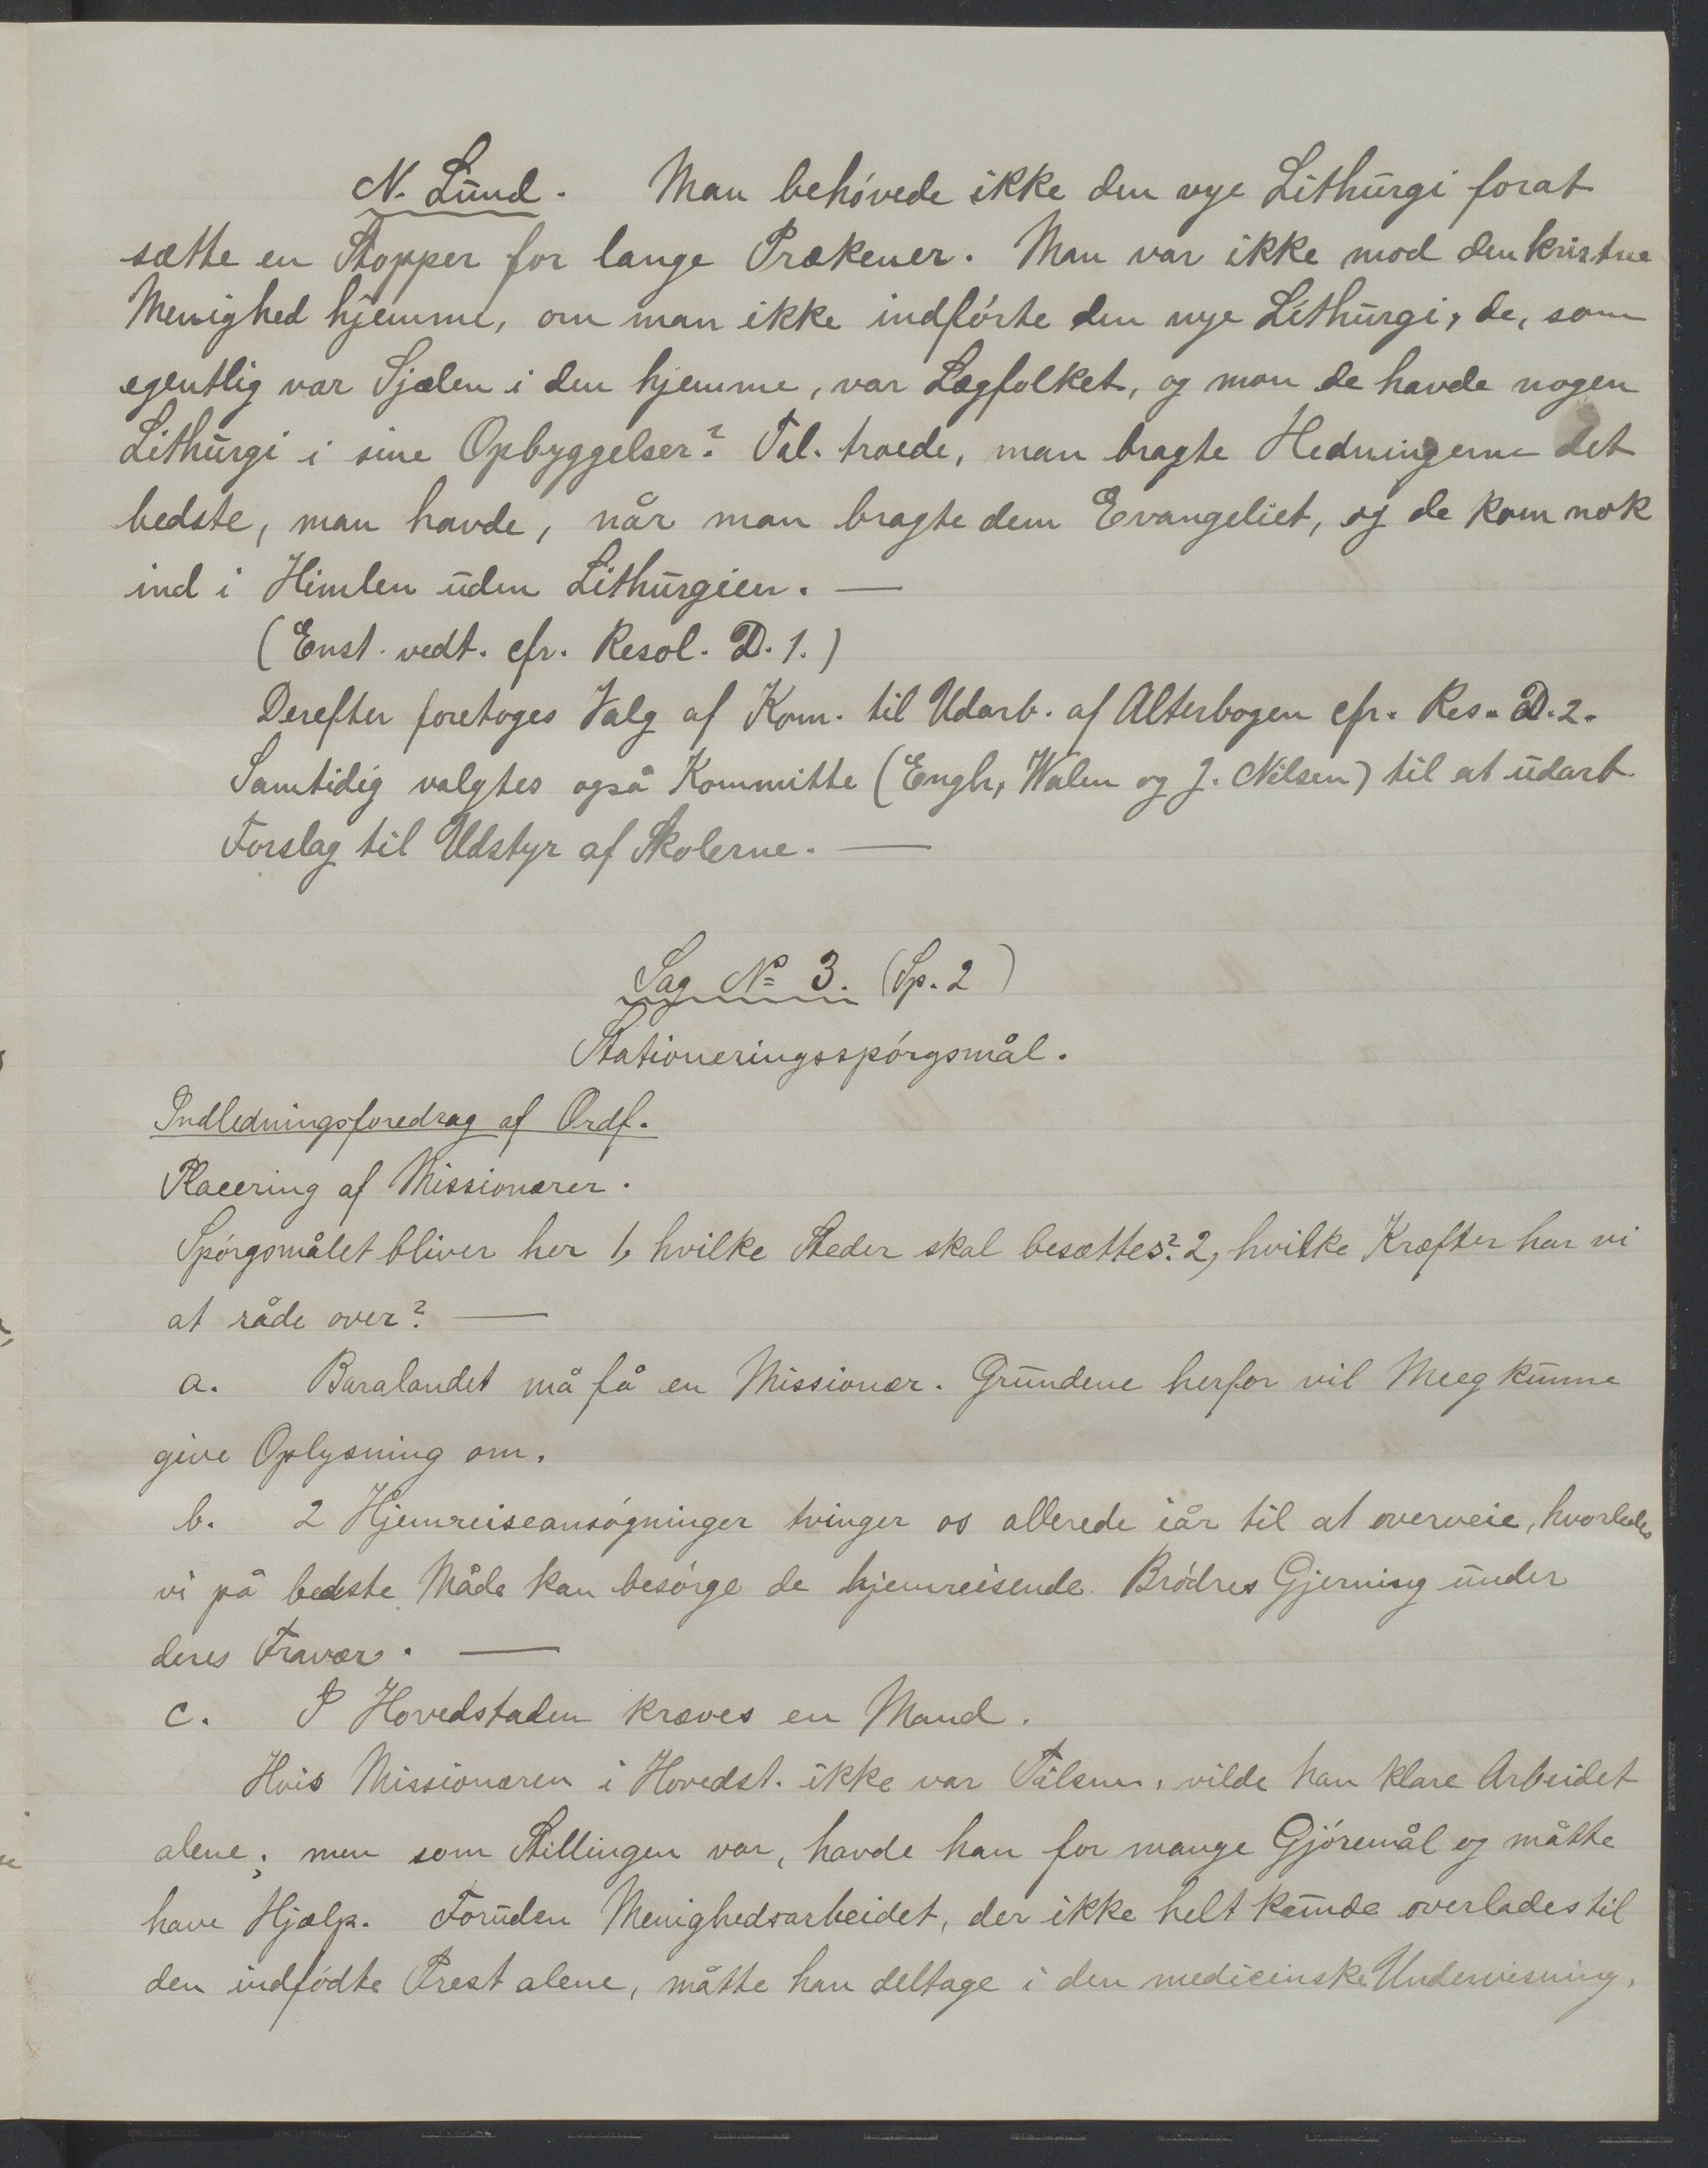 N. Lund. Man behøvede ikke den nye Lithurgi forat
sætte en Stopper for lange Prækener. Man var ikke mod den kristne
Menighed hjemme, om man ikke indførte den nye Lithurgi, de, som
egentlig var Sjælen i den hjemme, var Lægfolket, og mon de havde nogen
Lithurgi i sine Opbyggelser? Tal. troede, man bragte Hedningerne det
bedste, man havde, når man bragte dem Evangeliet, og de kom nok
ind i Himlen uden Lithurgien. —
(Enst. vedt. cfr. Resol. D. 1.)
Derefter foretoges Valg af Kom. til Udarb. af Alterbogen cfr. Res. D. 2.
Samtidig valgtes også Kommitte (Engh, Walen og J. Nilsen) til at udarb.
Forslag til Udstyr af Skolerne. —
Sag No 3. (Sp. 2)
Stationeringsspørgsmål.
Indledningsforedrag af Ordf.
Placering af Missionærer.
Spørgsmålet bliver her 1, hvilke Steder skal besættes? 2, hvilke Kræfter har vi
at råde over? —
a. Baralandet må få en Missionær. Grundene herfor vil Meeg kunne
give Oplysning om.
b. 2 Hjemreiseansøgninger tvinger os allerede iår til at overveie, hvorledes
vi på bedste Måde kan besørge de hjemreisende Brødres Gjerning under
deres Fravær. —
c. I Hovedstaden kræves en Mand.
Hvis Missionæren i Hovedst. ikke var Tilsm. vilde han klare Arbeidet
alene; men som Stillingen var, havde han for mange Gjøremål og måtte
have Hjælp. Foruden Menighedsarbeidet, der ikke helt kunde overlades til
den indfødte Prest alene, måtte han deltage i den medicinske Undervisning,